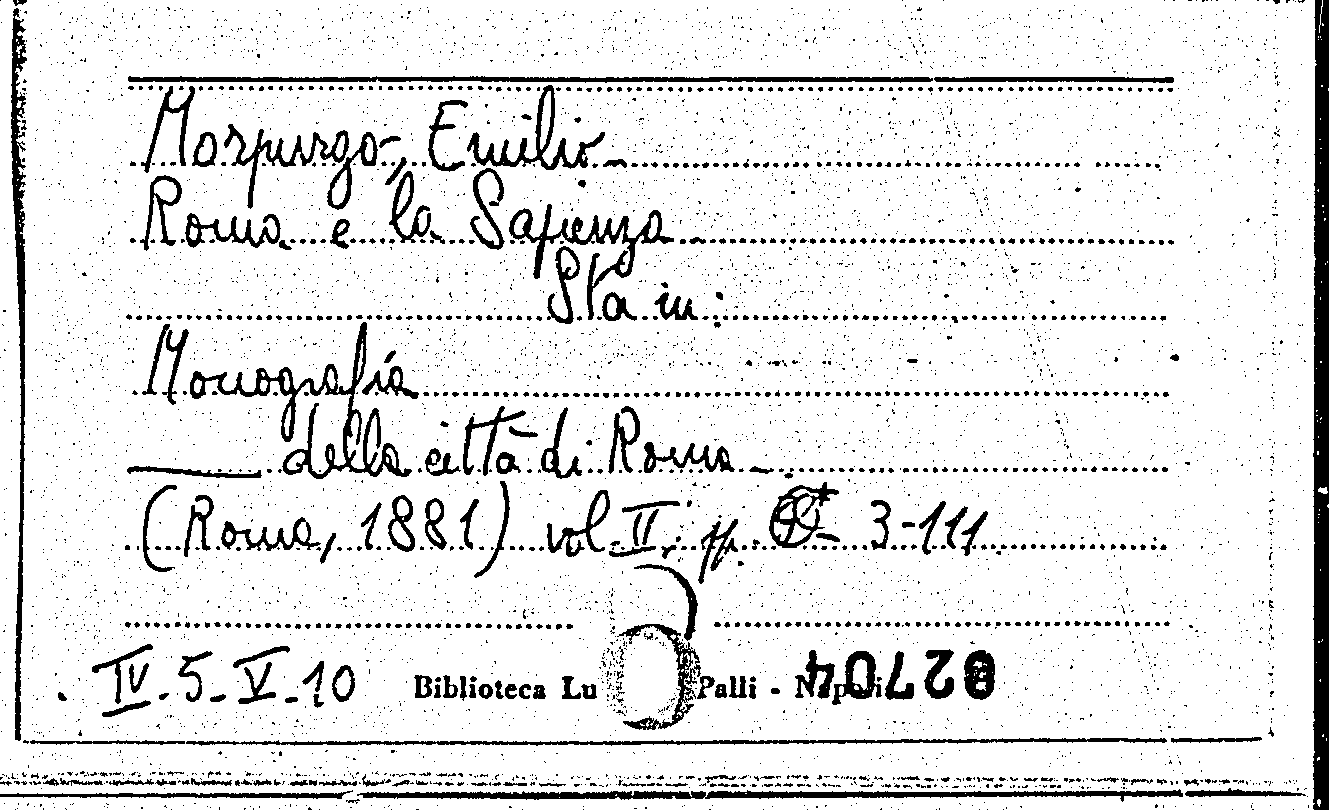 Morpurgo, Emilio
Roma e la Sapienza
Sta in:
Monografia
della città di Roma
(Roma, 1881) vol. II, pp. 3-111
IV.5-V-10 Biblioteca Lu Palli - Napoli